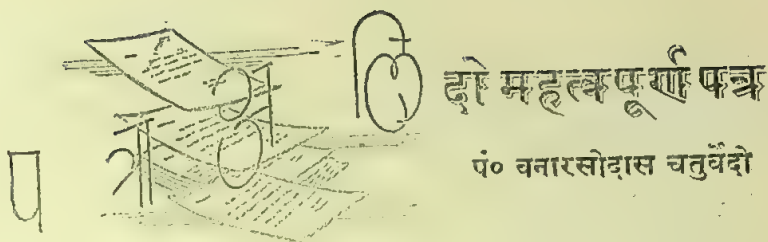 दो महत्वपूर्ण पत्र
पं० वनारसीदास चतुर्वेदी